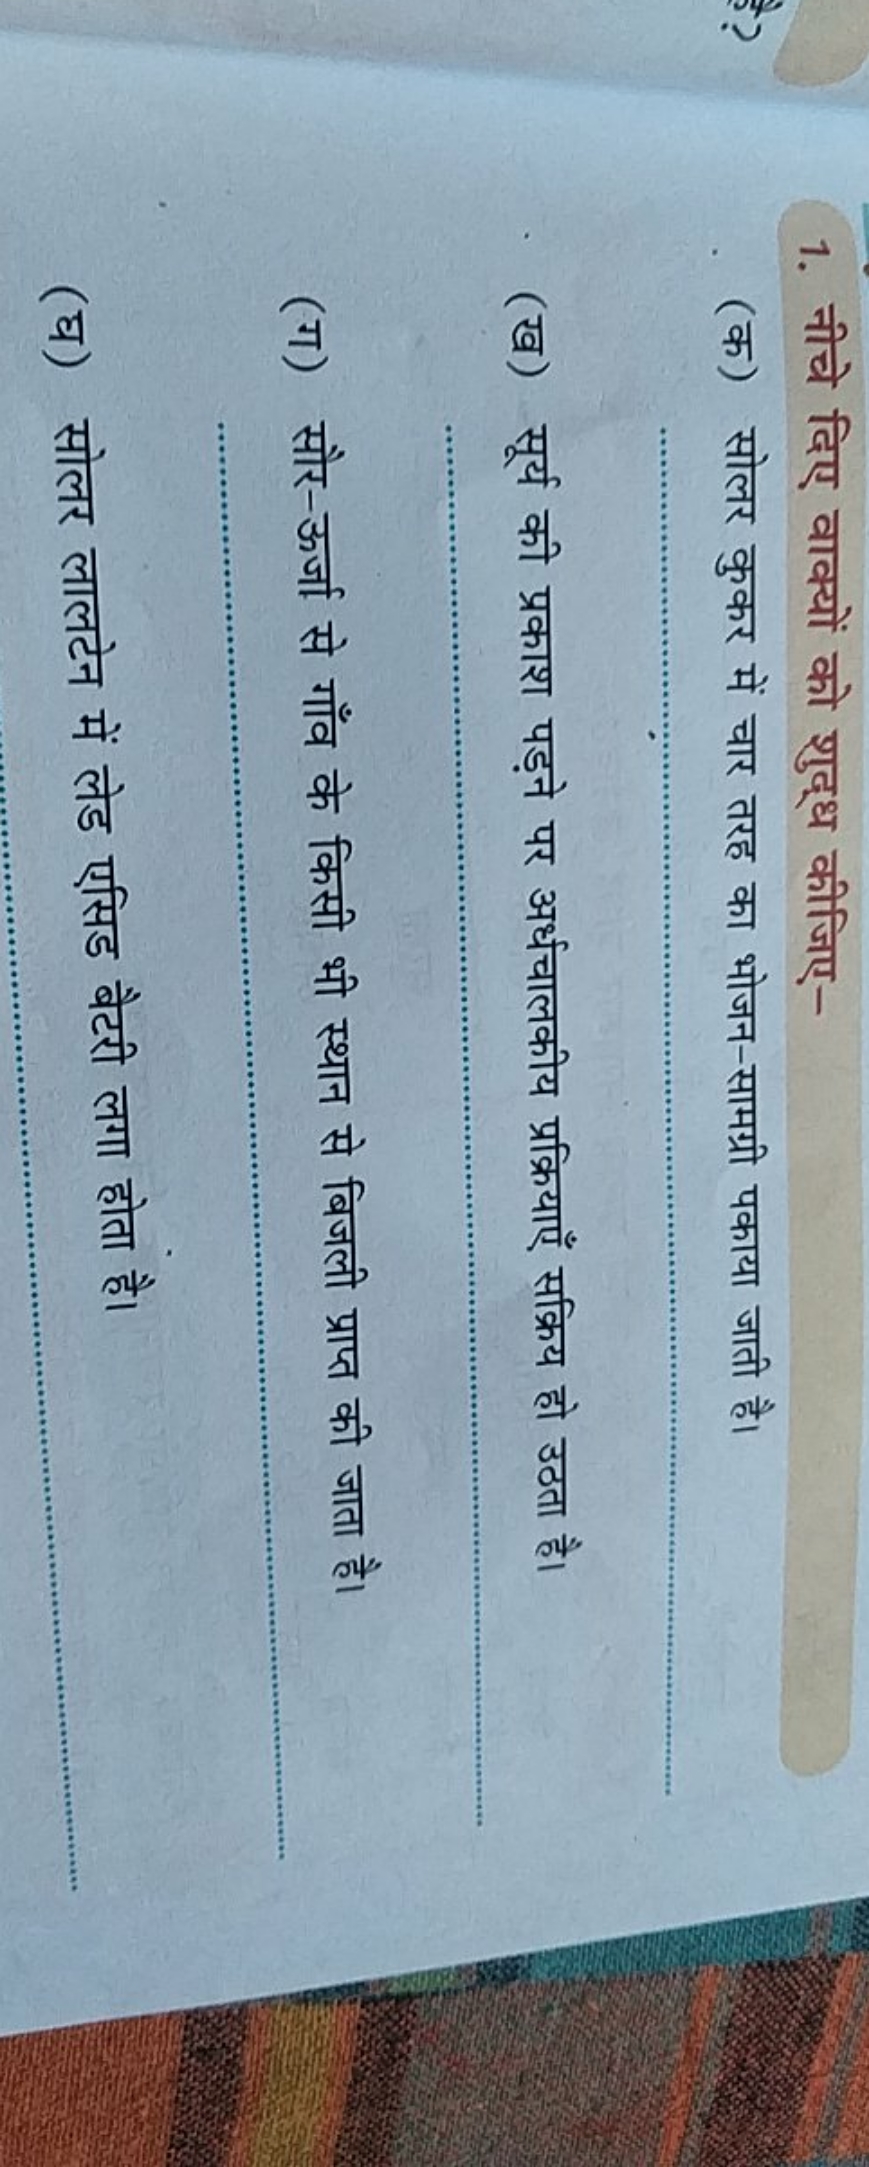 है?
1. नीचे दिए वाक्यों को शुद्ध कीजिए–
(क) सोलर कुकर में चार तरह का भोजन-सामग्री पकाया जाती है।
(ख) सूर्य की प्रकाश पड़ने पर अर्धचालकीय प्रक्रियाएँ सक्रिय हो उठता है।
(ग) सौर-ऊर्जा से गाँव के किसी भी स्थान से बिजली प्राप्त की जाता है।
(घ) सोलर लालटेन में लेड एसिड बैटरी लगा होता है।